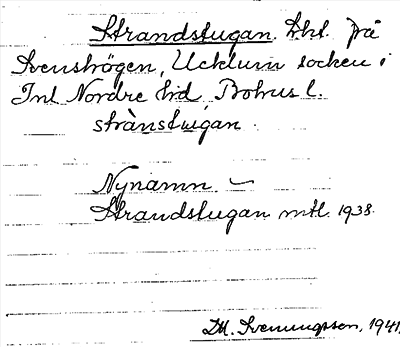 Strandstugan. Lht. på
Svenshögen, Ucklum socken i
Inl Nordre hd, Bohus l.
strànstùgan.
Nynamn. –
Strandstugan mtl. 1938.
D.H. Svenungsson, 1941.